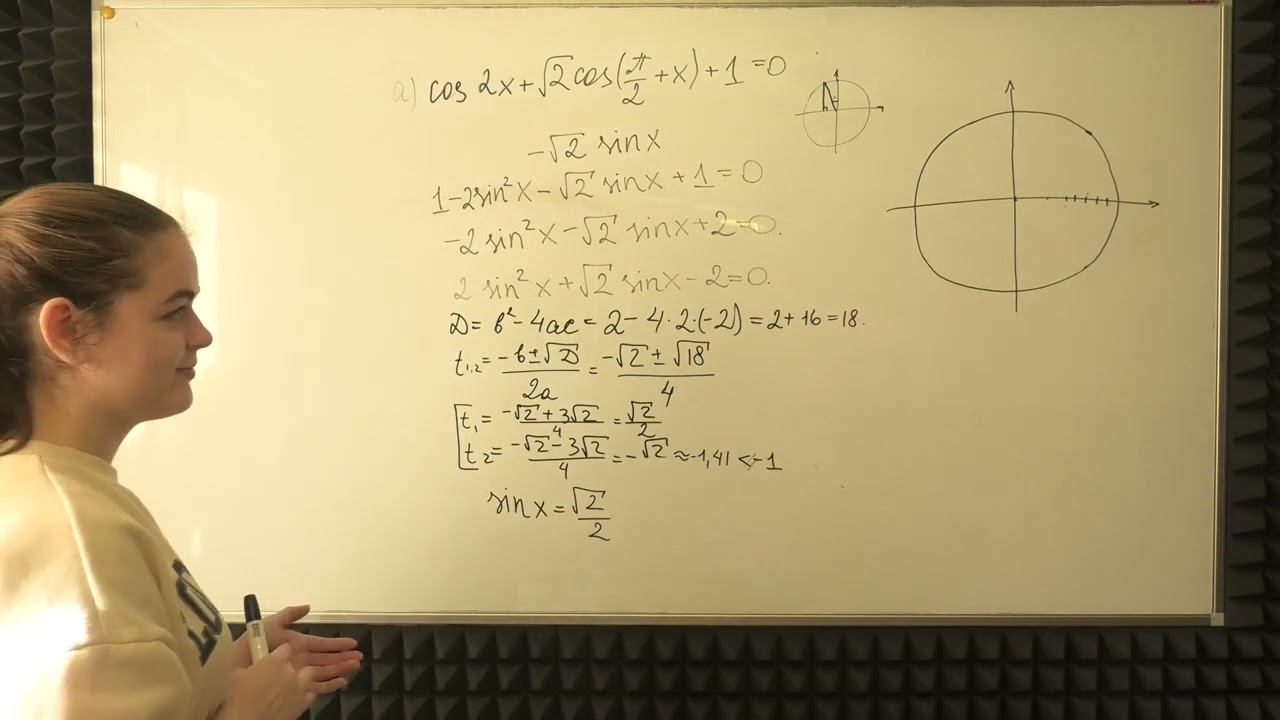 a) cos 2x + √2 cos(π/2 + x) + 1 = 0
-√2 sin x
1 - 2sin²x - √2 sin x + 1 = 0
-2 sin²x - √2 sin x + 2 = 0.
2 sin²x + √2 sin x - 2 = 0.
D = b² - 4ac = 2 - 4·2·(-2) = 2 + 16 = 18.
t₁,₂ = (-b ± √D)/2a = (-√2 ± √18)/4
t₁ = (-√2 + 3√2)/4 = √2/2
t₂ = (-√2 - 3√2)/4 = -√2 ≈ -1,41 < -1
sin x = √2/2